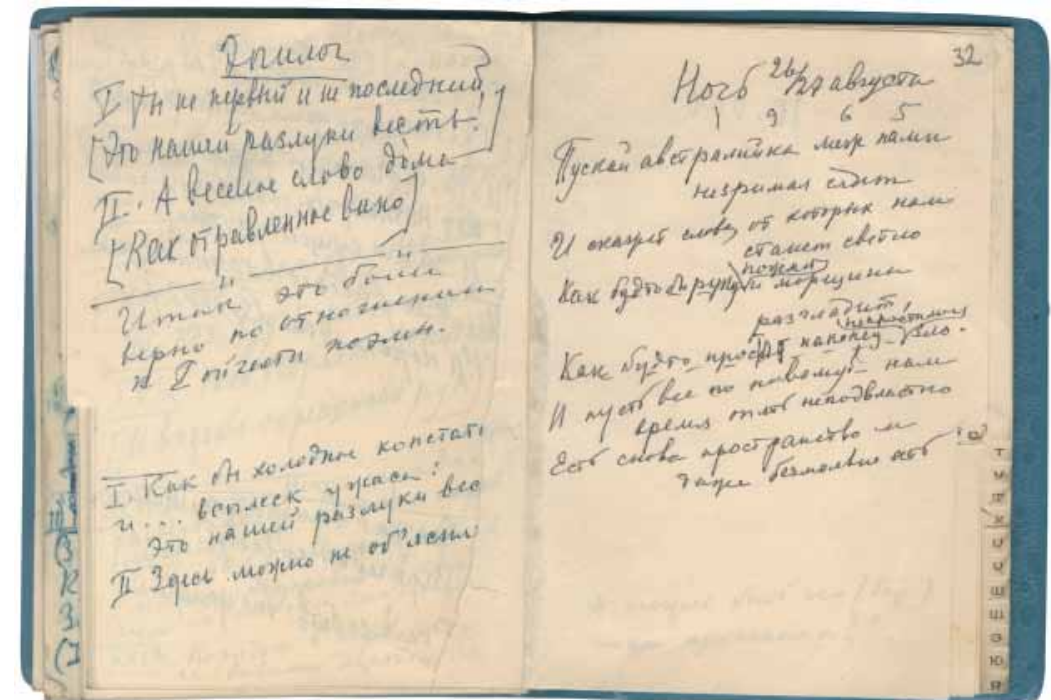 Эпилог
I Ты не первый и не последний
[Это нашей разлуки весть.]
II. А веселое слово дома
[Как отравленное вино]
Итак это более
верно по отношению
к I ой части поэмы.
I. Как бы холодная констат
и... всплеск ужаса:
Это нашей разлуки вес
II Здесь можно не об'ясня
32
Ночь 26/27 августа
1 9 6 5
Пускай австралийка меж нами
незримая сядет
И скажет слова, от которых нам
станет светло
Как будто бы руку
пожал и морщины
разгладит
Как будто простят наконец
непростимое зло.
И пусть все по новому нам
время опять неподвластно
Есть снова пространство и
даже безмолвие есть
Т
У
Ф
Х
Ц
Ч
Ш
Щ
Э
Ю
Я